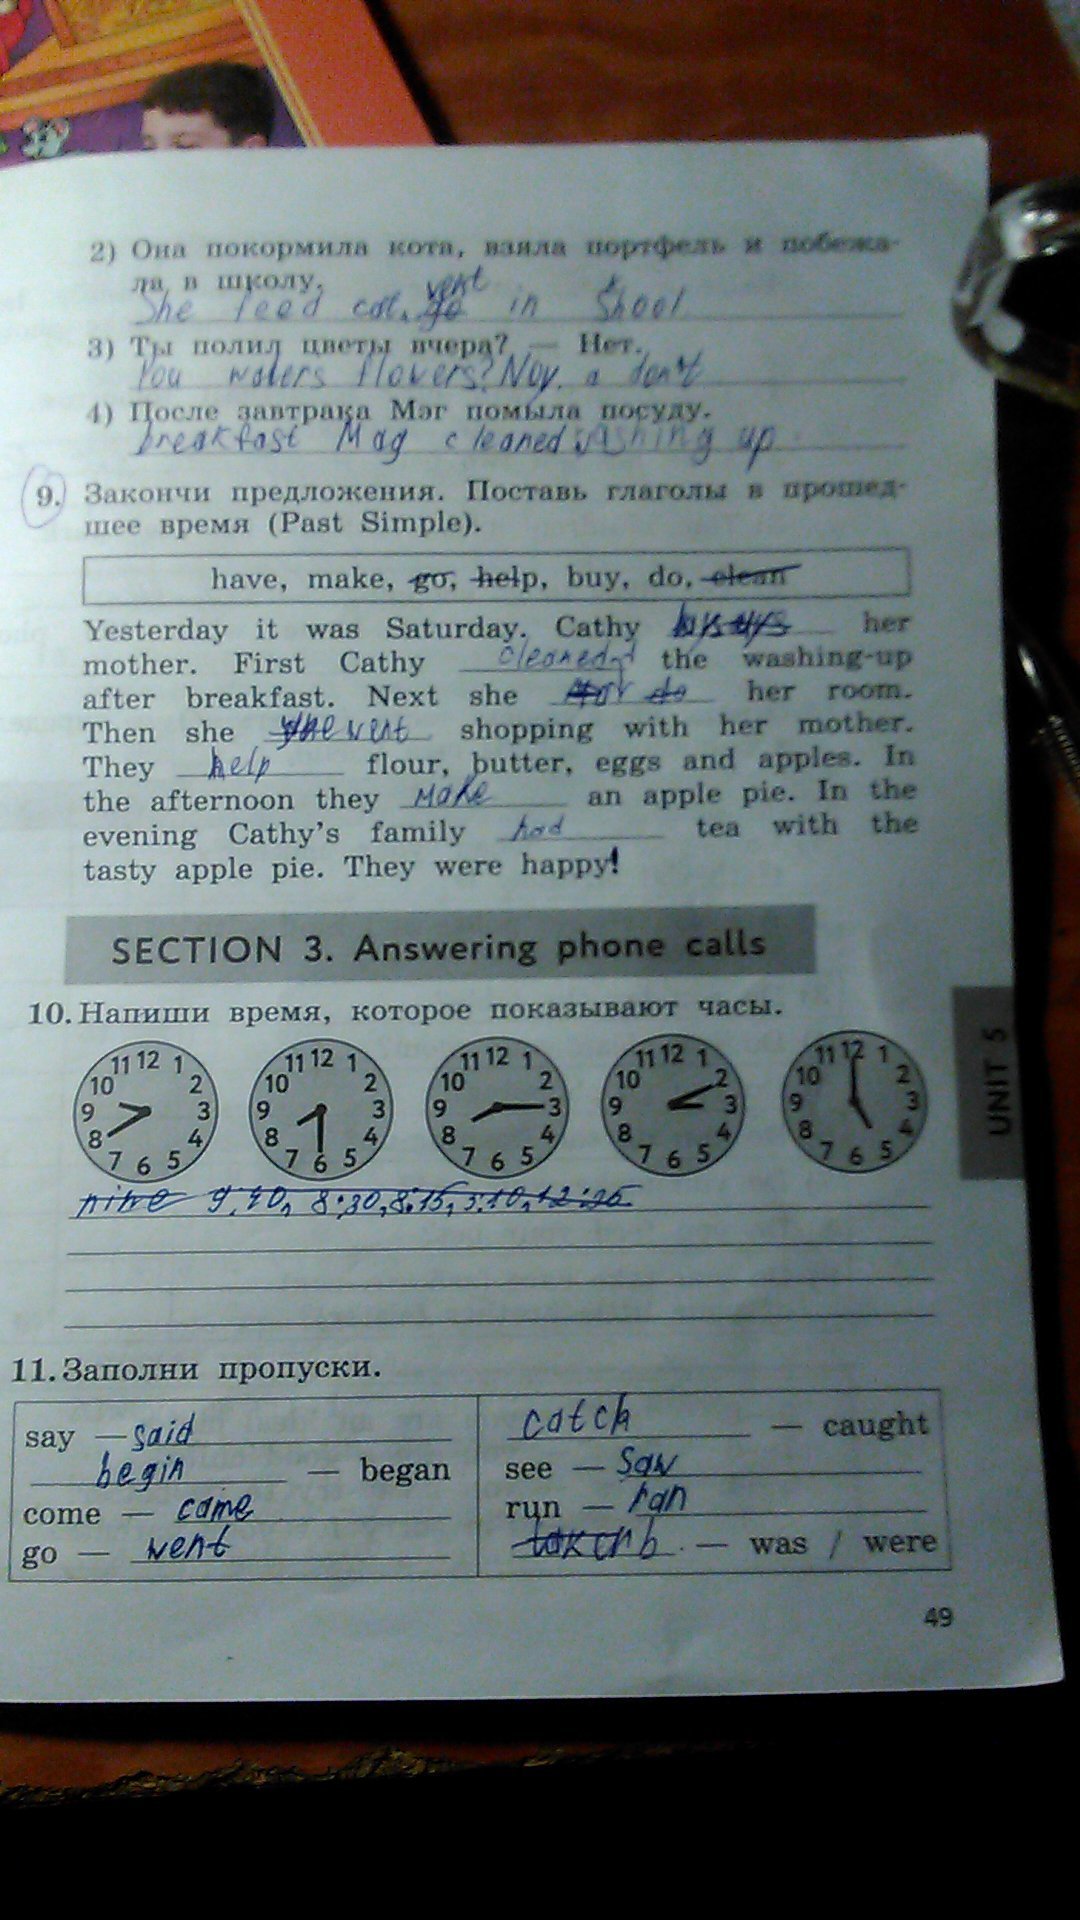 2) Она покормила кота, взяла портфель и побежа-
ла в школу.
She feed cat, go went in Shool
3) Ты полил цветы вчера? — Нет.
You waters flowers? Noy. a don't
4) После завтрака Мэг помыла посуду.
breakfast Mag cleaned washing up
9. Закончи предложения. Поставь глаголы в прошед-
шее время (Past Simple).
have, make, go, help, buy, do, clean
Yesterday it was Saturday. Cathy her
mother. First Cathy cleaned the washing-up
after breakfast. Next she do her room.
Then she went shopping with her mother.
They help flour, butter, eggs and apples. In
the afternoon they make an apple pie. In the
evening Cathy's family had tea with the
tasty apple pie. They were happy!
SECTION 3. Answering phone calls
10. Напиши время, которое показывают часы.
11 12 1 11 12 1 11 12 1 11 12 1 11 12 1
10 2 10 2 10 2 10 2 10 2
9 3 9 3 9 3 9 3 9 3
8 4 8 4 8 4 8 4 8 4
7 6 5 7 6 5 7 6 5 7 6 5 7 6 5
nine 9.40, 8:30, 8:15, 3:10,
UNIT 5
11. Заполни пропуски.
say — said
begin — began
come — came
go — went
catch — caught
see — saw
run — ran
— was / were
49